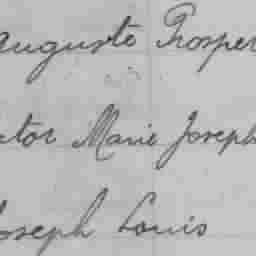 Auguste Prosper
ctor Marie Joseph
Joseph Louis